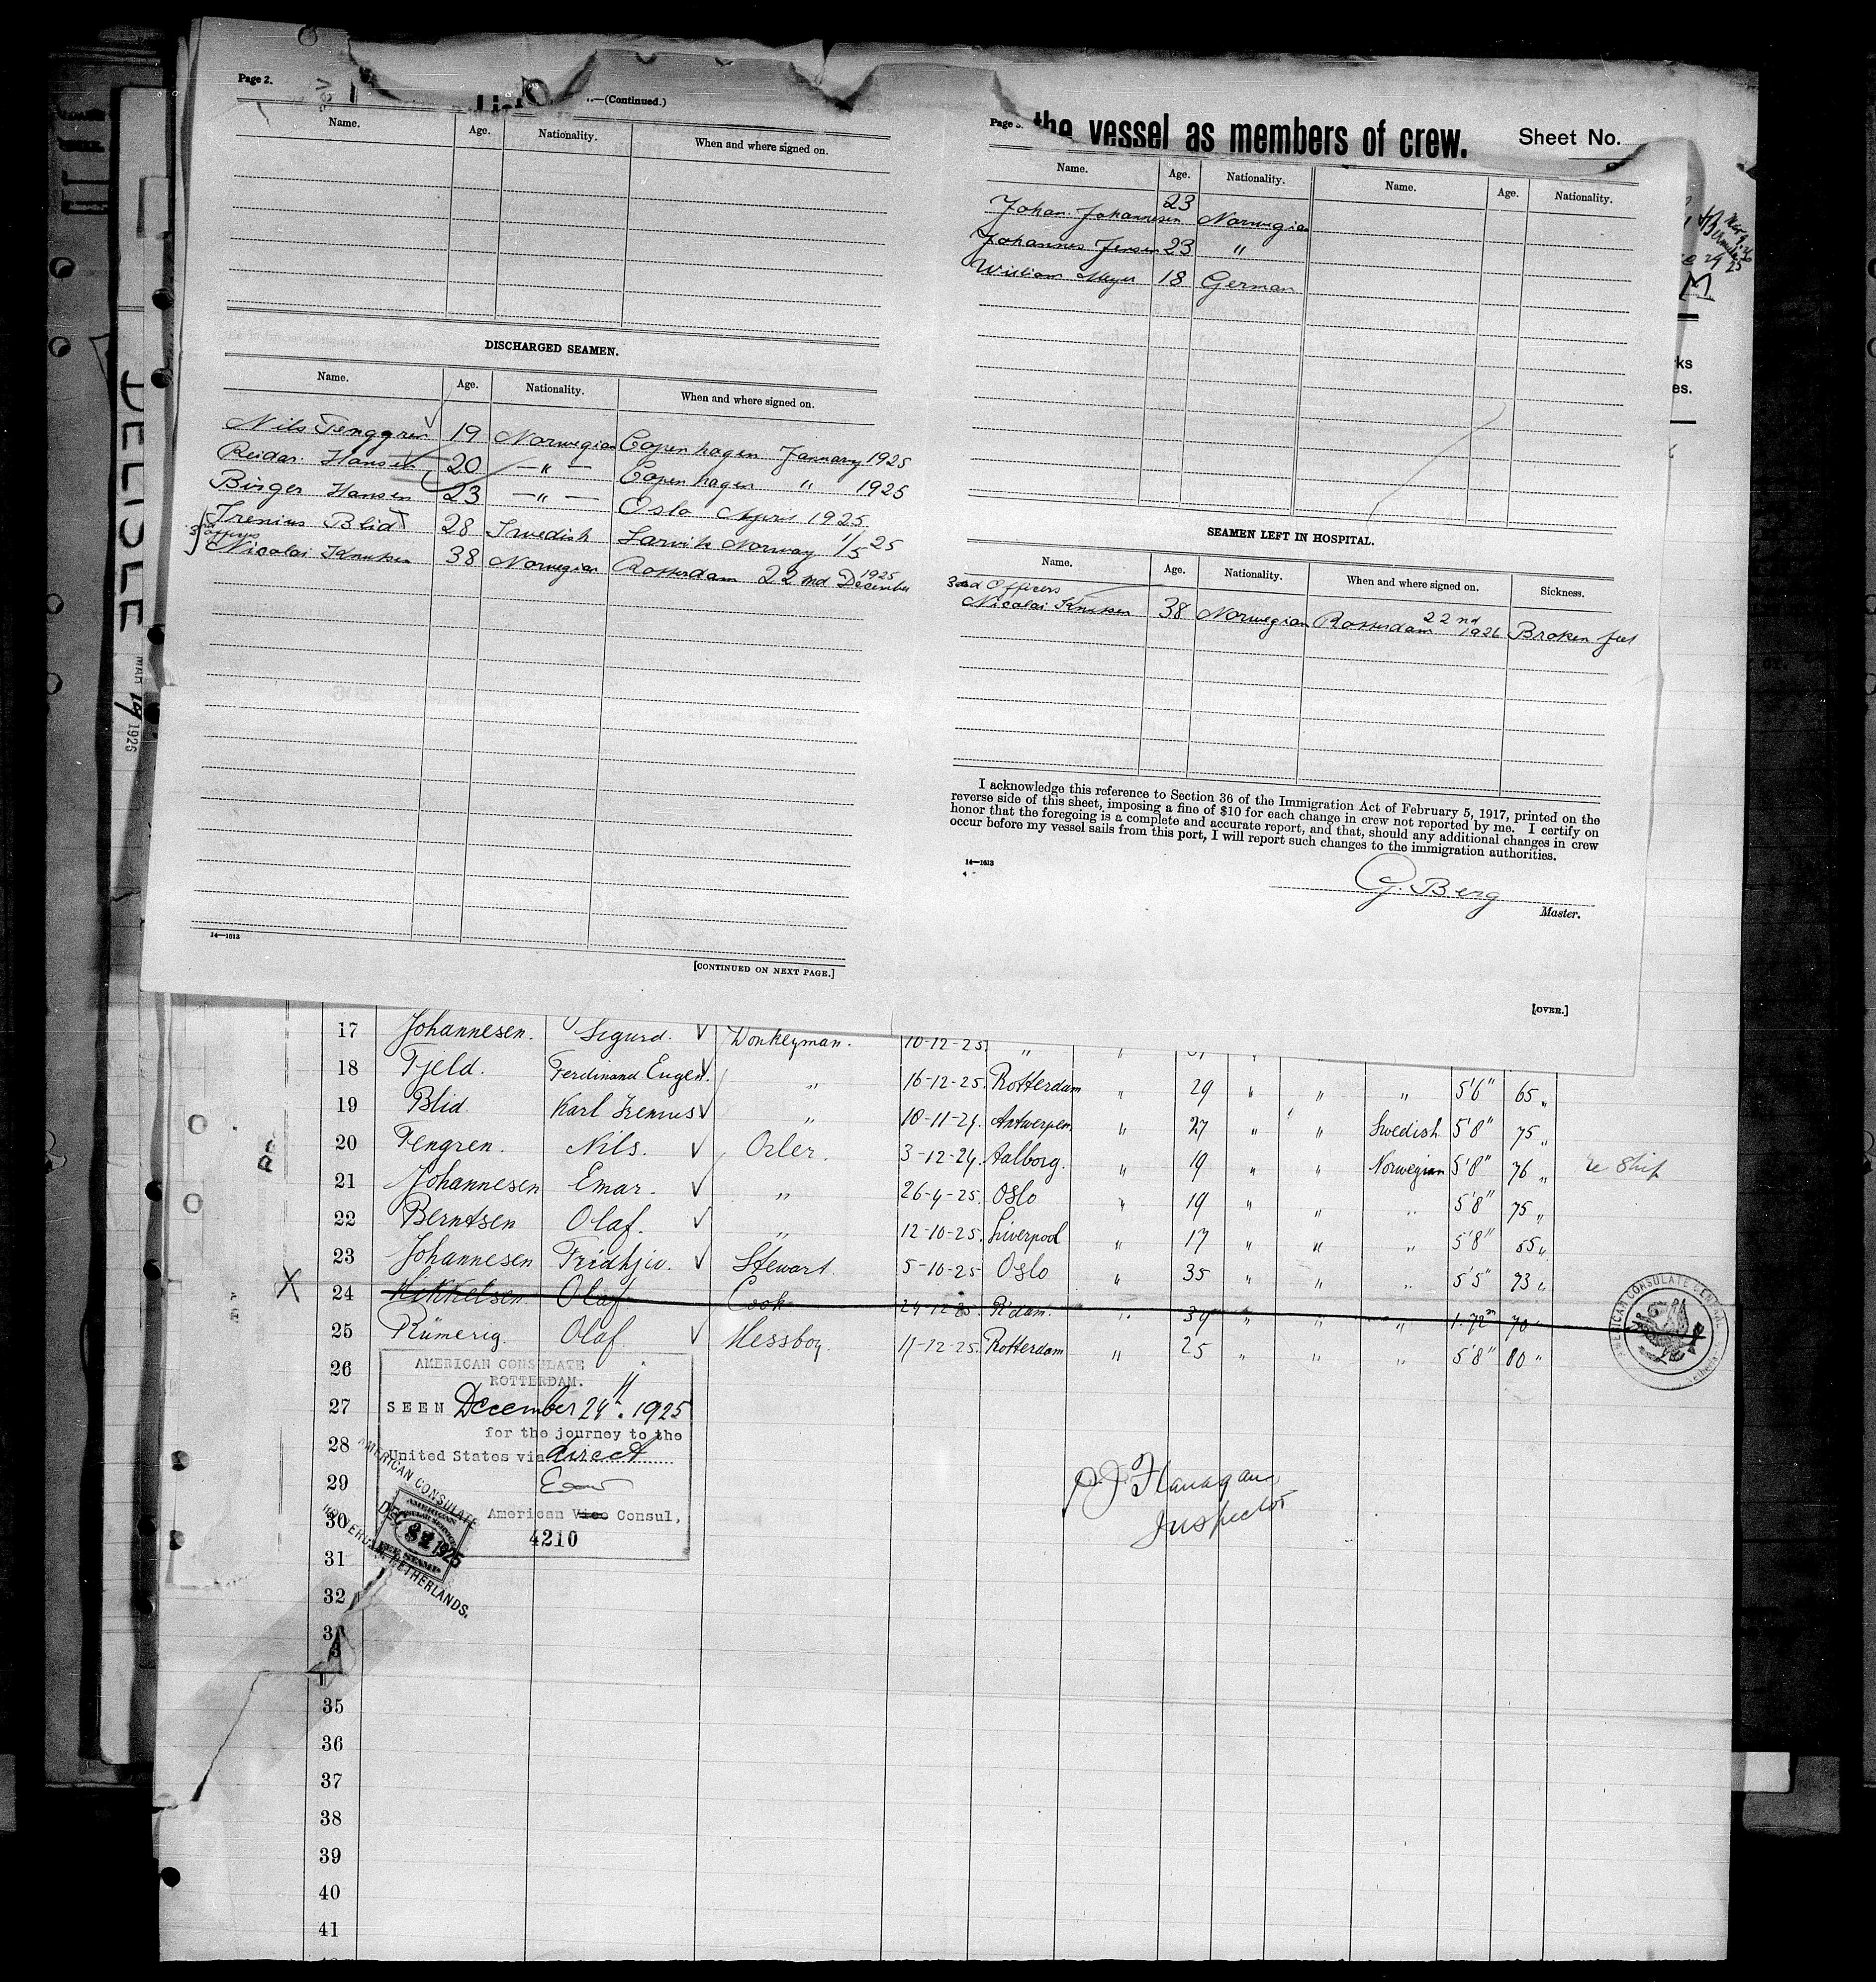 Page 2.
List
—(Continued.)
Name. Age. Nationality. When and where signed on.
DISCHARGED SEAMEN.
Name. Age. Nationality. When and where signed on.
Nils Tenggren 19 Norwegian Copenhagen January 1925
Reidar Hansen 20 —〃— Copenhagen 〃 1925
Birger Hansen 23 —〃— Oslo April 1925
Irenius Blid 28 Swedish Larvik Norway 1/5 25
3rd officers
Nicolai Knutsen 38 Norwegian Rotterdam 22nd December 1925
14—1613
[CONTINUED ON NEXT PAGE.]
Page 3.
the vessel as members of crew. Sheet No.
Name. Age. Nationality. Name. Age. Nationality.
Johan Johannesen 23 Norwegian
Johannes Jensen 23 〃
William Meyer 18 German
SEAMEN LEFT IN HOSPITAL.
Name. Age. Nationality. When and where signed on. Sickness.
3rd Officers
Nicolai Knutsen 38 Norwegian Rotterdam 22nd 1926 Broken feet
I acknowledge this reference to Section 36 of the Immigration Act of February 5, 1917, printed on the
reverse side of this sheet, imposing a fine of $10 for each change in crew not reported by me. I certify on
honor that the foregoing is a complete and accurate report, and that, should any additional changes in crew
occur before my vessel sails from this port, I will report such changes to the immigration authorities.
14—1613
G. Berg
Master.
[OVER.]
ks
es.
MAR 19 1926
17 Johannesen. Sigurd. Donkeyman. 10-12-25. 〃 〃
18 Fjeld. Ferdinand Eugen. 〃 16-12-25. Rotterdam 〃 29 〃 〃 〃 5'6" 65 〃
19 Blid. Karl Irenius 〃 10-11-24. Antwerpen. 〃 27 〃 〃 Swedish 5'8" 75 〃
20 Tengren. Nils. Oiler. 3-12-24. Aalborg. 〃 19 〃 〃 Norwegian 5'8" 76 〃 re Ship
21 Johannesen Einar. 〃 26-4-25. Oslo 〃 19 〃 〃 〃 5'8" 75 〃
22 Berntsen Olaf. 〃 12-10-25. Liverpool 〃 17 〃 〃 〃 5'8" 55 〃
23 Johannesen Fridhjiv. Stewart. 5-10-25 Oslo 〃 35 〃 〃 〃 5'5" 93 〃
X 24 Mikkelsen. Olaf Cook 24-12-25. R'dam. 〃 39 〃 〃 〃 1.72m 70 〃
25 Rümerig. Olaf Messboy. 17-12-25. Rotterdam 〃 25 〃 〃 〃 5'8" 80 〃
26
27
28
29
30
31
32
33
35
36
37
38
39
40
41
AMERICAN CONSULATE
ROTTERDAM.
SEEN December 24th. 1925
for the journey to the
United States via direct
American Vice Consul,
4210
AMERICAN CONSULATE
DEC 1925
AMERICAN
CONSULAR SERVICE
FEE STAMP
ROTTERDAM, NETHERLANDS.
P. J. Flanagan
Inspector
AMERICAN CONSULATE GENERAL